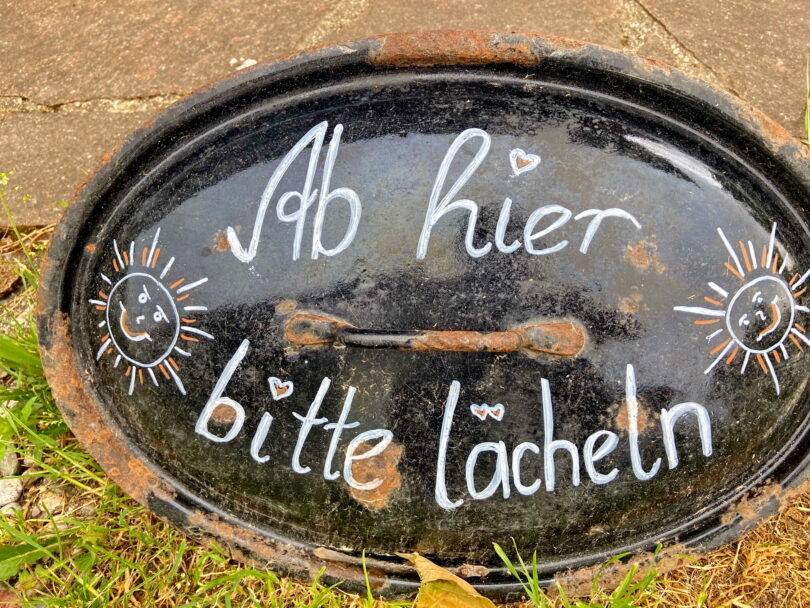 Ab hier
bitte lächeln